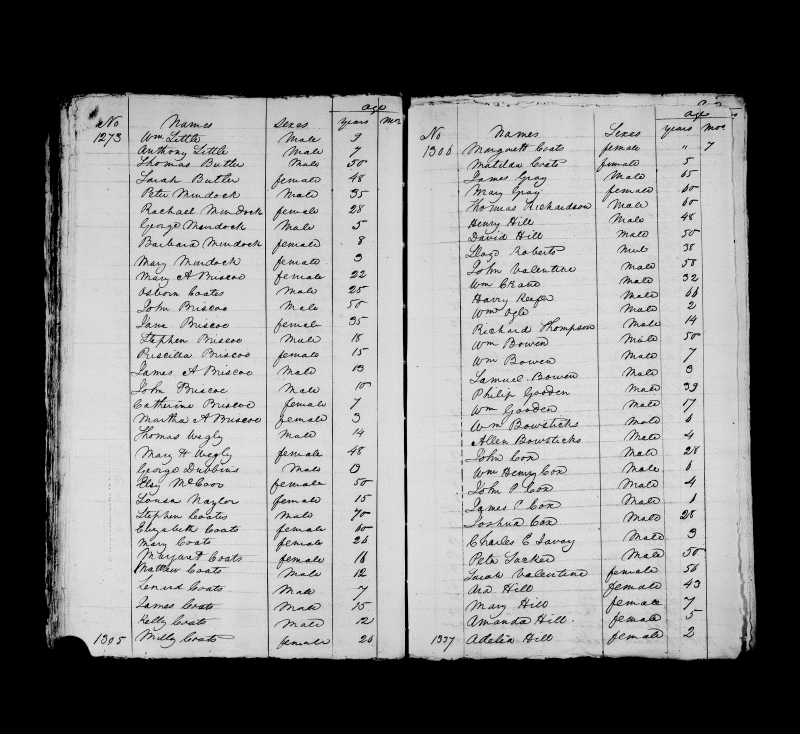 age
No Names Sexes years mos
1273 Wm Little Male 9
Anthony Little Male 7
Thomas Butler Male 50
Sarah Butler female 48
Peter Murdock Male 35
Rachael Murdock female 28
George Murdock Male 5
Barbara Murdock female 8
Mary Murdock female 3
Mary A Briscoe female 22
Osborn Coates Male 25
John Briscoe Male 50
Jane Briscoe female 35
Stephen Briscoe Male 18
Priscilla Briscoe female 15
James A Briscoe Male 13
John Briscoe Male 10
Catherine Briscoe female 7
Martha A Briscoe female 3
Thomas Wegly Male 14
Mary H Wegly female 48
George Dubbins Male 13
Elsy McCoor female 50
Louisa Naylor female 15
Stephen Coates Male 70
Elizabeth Coats female 60
Mary Coats female 26
Margaret Coats female 16
Matthew Coats Male 12
Lenard Coats Male 7
James Coats Male 15
Kelly Coats Male 12
1305 Milly Coats female 26
age
No Names Sexes years mos
1306 Margrett Coats female " 7
Matilda Coats female 5
James Gray Male 65
Mary Gray female 60
Thomas Richardson Male 60
Henry Hill Male 48
David Hill Male 50
Lloyd Roberts 38
John Valentine Male 58
Wm Crane Male 32
Harry Reefer Male 66
Wm Ogle Male 2
Richard Thompson Male 14
Wm Bowen Male 50
Wm Bowen Male 7
Samuel Bowen Male 3
Philip Godden Male 39
Wm Godden Male 17
Wm Bowsticks Male 6
Allen Bowsticks Male 4
John Cox Male 28
Wm Henry Cox Male 6
John P Cox Male 4
James P Cox Male 1
Joshua Cox Male 28
Charles C Savoy Male 3
Peter Locker Male 50
Sarah Valentine female 56
Ara Hill female 43
Mary Hill female 7
Amanda Hill female 5
1337 Adelia Hill female 2